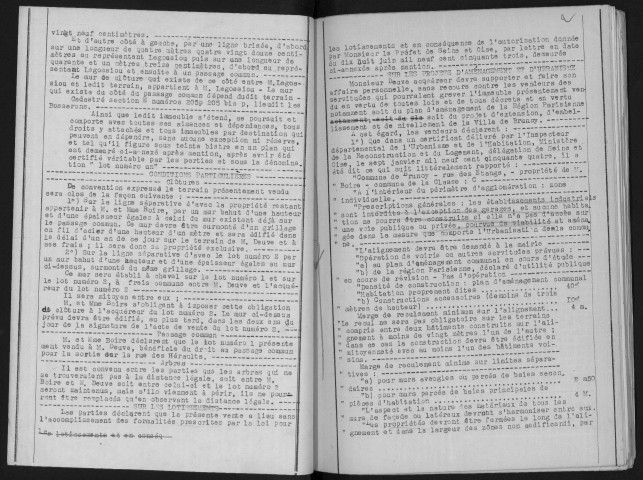 vingt neuf centimètres.
Et d'autre côté à gauche, par une ligne brisée, d'abord
sur une longueur de quatre mètres quatre vingt douze centi-
mètres au représentant Legossiou puis sur une longueur de
quarante et un mètres treize centimètres, d'abord au repré-
sentant Legossiou et ensuite à un passage commun.
Le mur de clôture qui existe de ce côté entre M.
siou et ledit terrain, appartient à M. Legossiou - Le mur
qui existe du côté du passage commun dépend dudit terrain -
Cadastré section B numéros 205p 206 bis p. lieudit les
Bosserons.
Ainsi que ledit immeuble s'étend, se poursuit et
comporte avec toutes ses aisances et dépendances, tous
droits y attachés et tous immeubles par destination qui
peuvent en dépendre, sans aucune exception ni réserve,
et tel qu'il figure sous teinte bistre en un plan qui
est demeuré ci-annexé après mention, après avoir été
certifié véritable par les parties et sous la dénomina-
tion " lot numéro un"
CONDITIONS PARTICULIERES
Clôtures
De convention expresse le terrain présentement vendu
sera clos de la façon suivante :
1°) Sur la ligne séparative d'avec la propriété restant
appartenir à M. et Mme Boire, par un mur bahut d'une hauteur
et d'une épaisseur égales à celui du mur existant déjà sur
le passage commun. Ce mur devra être surmonté d'un grillage
en fil d'acier d'une hauteur d'un mètre et sera édifié dans
le délai d'un an de ce jour sur le terrain de M. Deuve et à
ses frais ; il sera donc sa propriété exclusive.
2°) Sur la ligne séparative d'avec le lot numéro 2 par
un mur bahut d'une hauteur et d'une épaisseur égales au mur
ci-dessus, surmonté du même grillage.
Ce mur sera établi à cheval sur le lot numéro 1 et sur
le lot numéro 2, à frais communs entre M. Deuve et l'acqué-
reur du lot numéro 2
Il sera mitoyen entre eux ;
M. et Mme Boire s'obligent à imposer cette obligation
de clôture à l'acquéreur du lot numéro 2. Le mur ci-dessus
prévu devra être édifié, au plus tard, dans les deux ans du
jour de la signature de l'acte de vente du lot numéro 2.
Passage commun
M. et Mme Boire déclarent que le lot numéro 1 présente
ment vendu à M. Deuve, bénéficie du droit au passage commun
pour la sortie sur la rue des Hérault.
Arbres
Il est convenu entre les parties que les arbres qui ne
se trouveraient pas à la distance légale, soit entre M.
Boire et M. Deuve soit entre celui-ci et le lot numéro 2
seront maintenus, mais s'ils viennent à périr, ils ne pour-
ront être remplacés qu'en observant la distance légale.
SUR LES LOTISSEMENTS
Les parties déclarent que la présente vente a lieu sans
l'accomplissement des formalités prescrites par la loi pour
les lotissements et en conséq
les lotissements et en conséquence de l'autorisation donnée
par Monsieur le Préfet de Seine et Oise, par lettre en date
du dix huit juin mil neuf cent cinquante trois, demeurée
ci-annexée après mention.
SUR LES PROJETS D'AMENAGEMENT ET D'URBANISME
Monsieur Deuve acquéreur devra supporter et faire son
affaire personnelle, sans recours contre les vendeurs des
servitudes qui pourraient grever l'immeuble présentement ven-
du en vertu de toutes lois et de tous décrets et en vertu
notamment soit du plan d'aménagement de la Région Parisienne
soit du projet d'extension, d'embel-
lissement et de nivellement de la Ville de Brunoy.
A cet égard, les vendeurs déclarent :
1°) Que dans un certificat délivré par l'Inspecteur
départemental de l'Urbanisme et de l'Habitation, Ministère
de la Reconstruction et du Logement, délégation de Seine et
Oise, le sept janvier mil neuf cent cinquante quatre, il a
été dit ce qui suit littéralement rapporté :
"Commune de Brunoy - rue des Etangs, - propriété de M.
" Boire - commune de la Classe : C
" A l'intérieur du périmètre d'agglomération : zone
" individuelle.
"Prescriptions générales : les établissements industriels
" sont interdits à l'exception des garages, et aucune habita-
" tion ne pourra être construite si elle n'a pas d'accès sur
" une voie publique ou privée, pourvue de viabilité et aména-
" gée dans la mesure que comporte l'urbanisation de la commu
" ne.
"L'alignement devra être demandé à la mairie
"Opération de voirie ou autres servitudes prévues :
" a) au plan d'aménagement communal en cours d'étude
" b) de la région Parisienne, déclaré d'utilité publique
" en cours de révision - Pas d'opération
"Densité de construction : plan d'aménagement communal
" Habitation proprement dites 40%
" b) Constructions accessoires (demoins de trois
" mètres de hauteur) 10%
" Marge de reculement minimum sur l'alignement... 4 m.
"Le recul ne sera pas obligatoire sur les terrains
" compris entre deux bâtiments construits sur l'ali-
" gnement à moins de vingt mètres l'un de l'autre ;
" dans ce cas la construction devra être édifiée en
" mitoyenneté avec au moins l'un des bâtiments voi-
" sins.
" Marge de reculement minimum sur limites sépara-
" tives :
" a) pour murs aveugles ou percés de baies secon-
" daires 2 m50
" b) pour murs percés de baies principales de
" pièces d'habitation 4 M.
"L'aspect et la nature des matériaux de tous les
" murs de façade ou latéraux devront s'harmoniser entre eux.
"Les propriétés devront être fermées le long de l'ali-
" gnement et dans la largeur des zônes non aedificandi, par